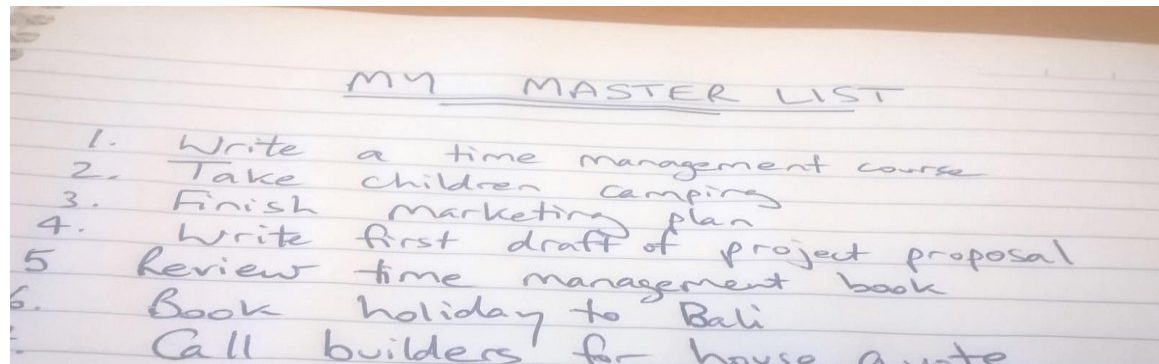 MY MASTER LIST
1. Write a time management course
2. Take children camping
3. Finish marketing plan
4. Write first draft of project proposal
5 Review time management book
6. Book holiday to Bali
Call builders for house quote